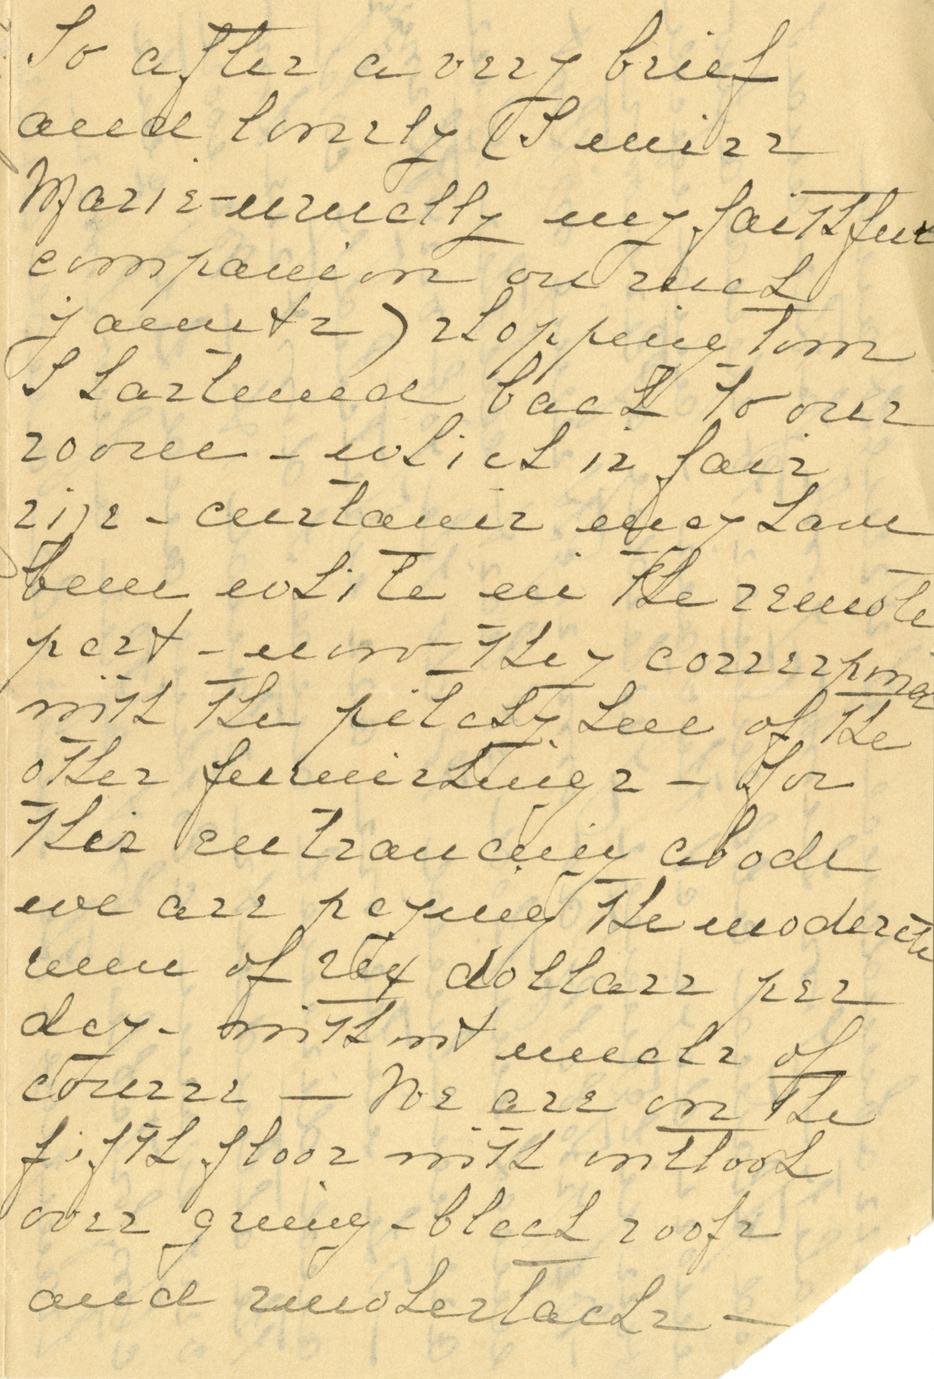 So after a very brief
and lonely (I miss
Marie - usually my faithful
companion on such
jaunts) shopping tour
I hastened back to our
room - which is fair
size - curtains may have
been white in the remote
past - now they correspond
with the pitchy hue of the
other furnishings - For
this entrancing abode
we are paying the moderate
sum of six dollars per
day - without meals of
course - We are on the
fifth floor with outlook
over grimy - black roofs
and smokestacks -